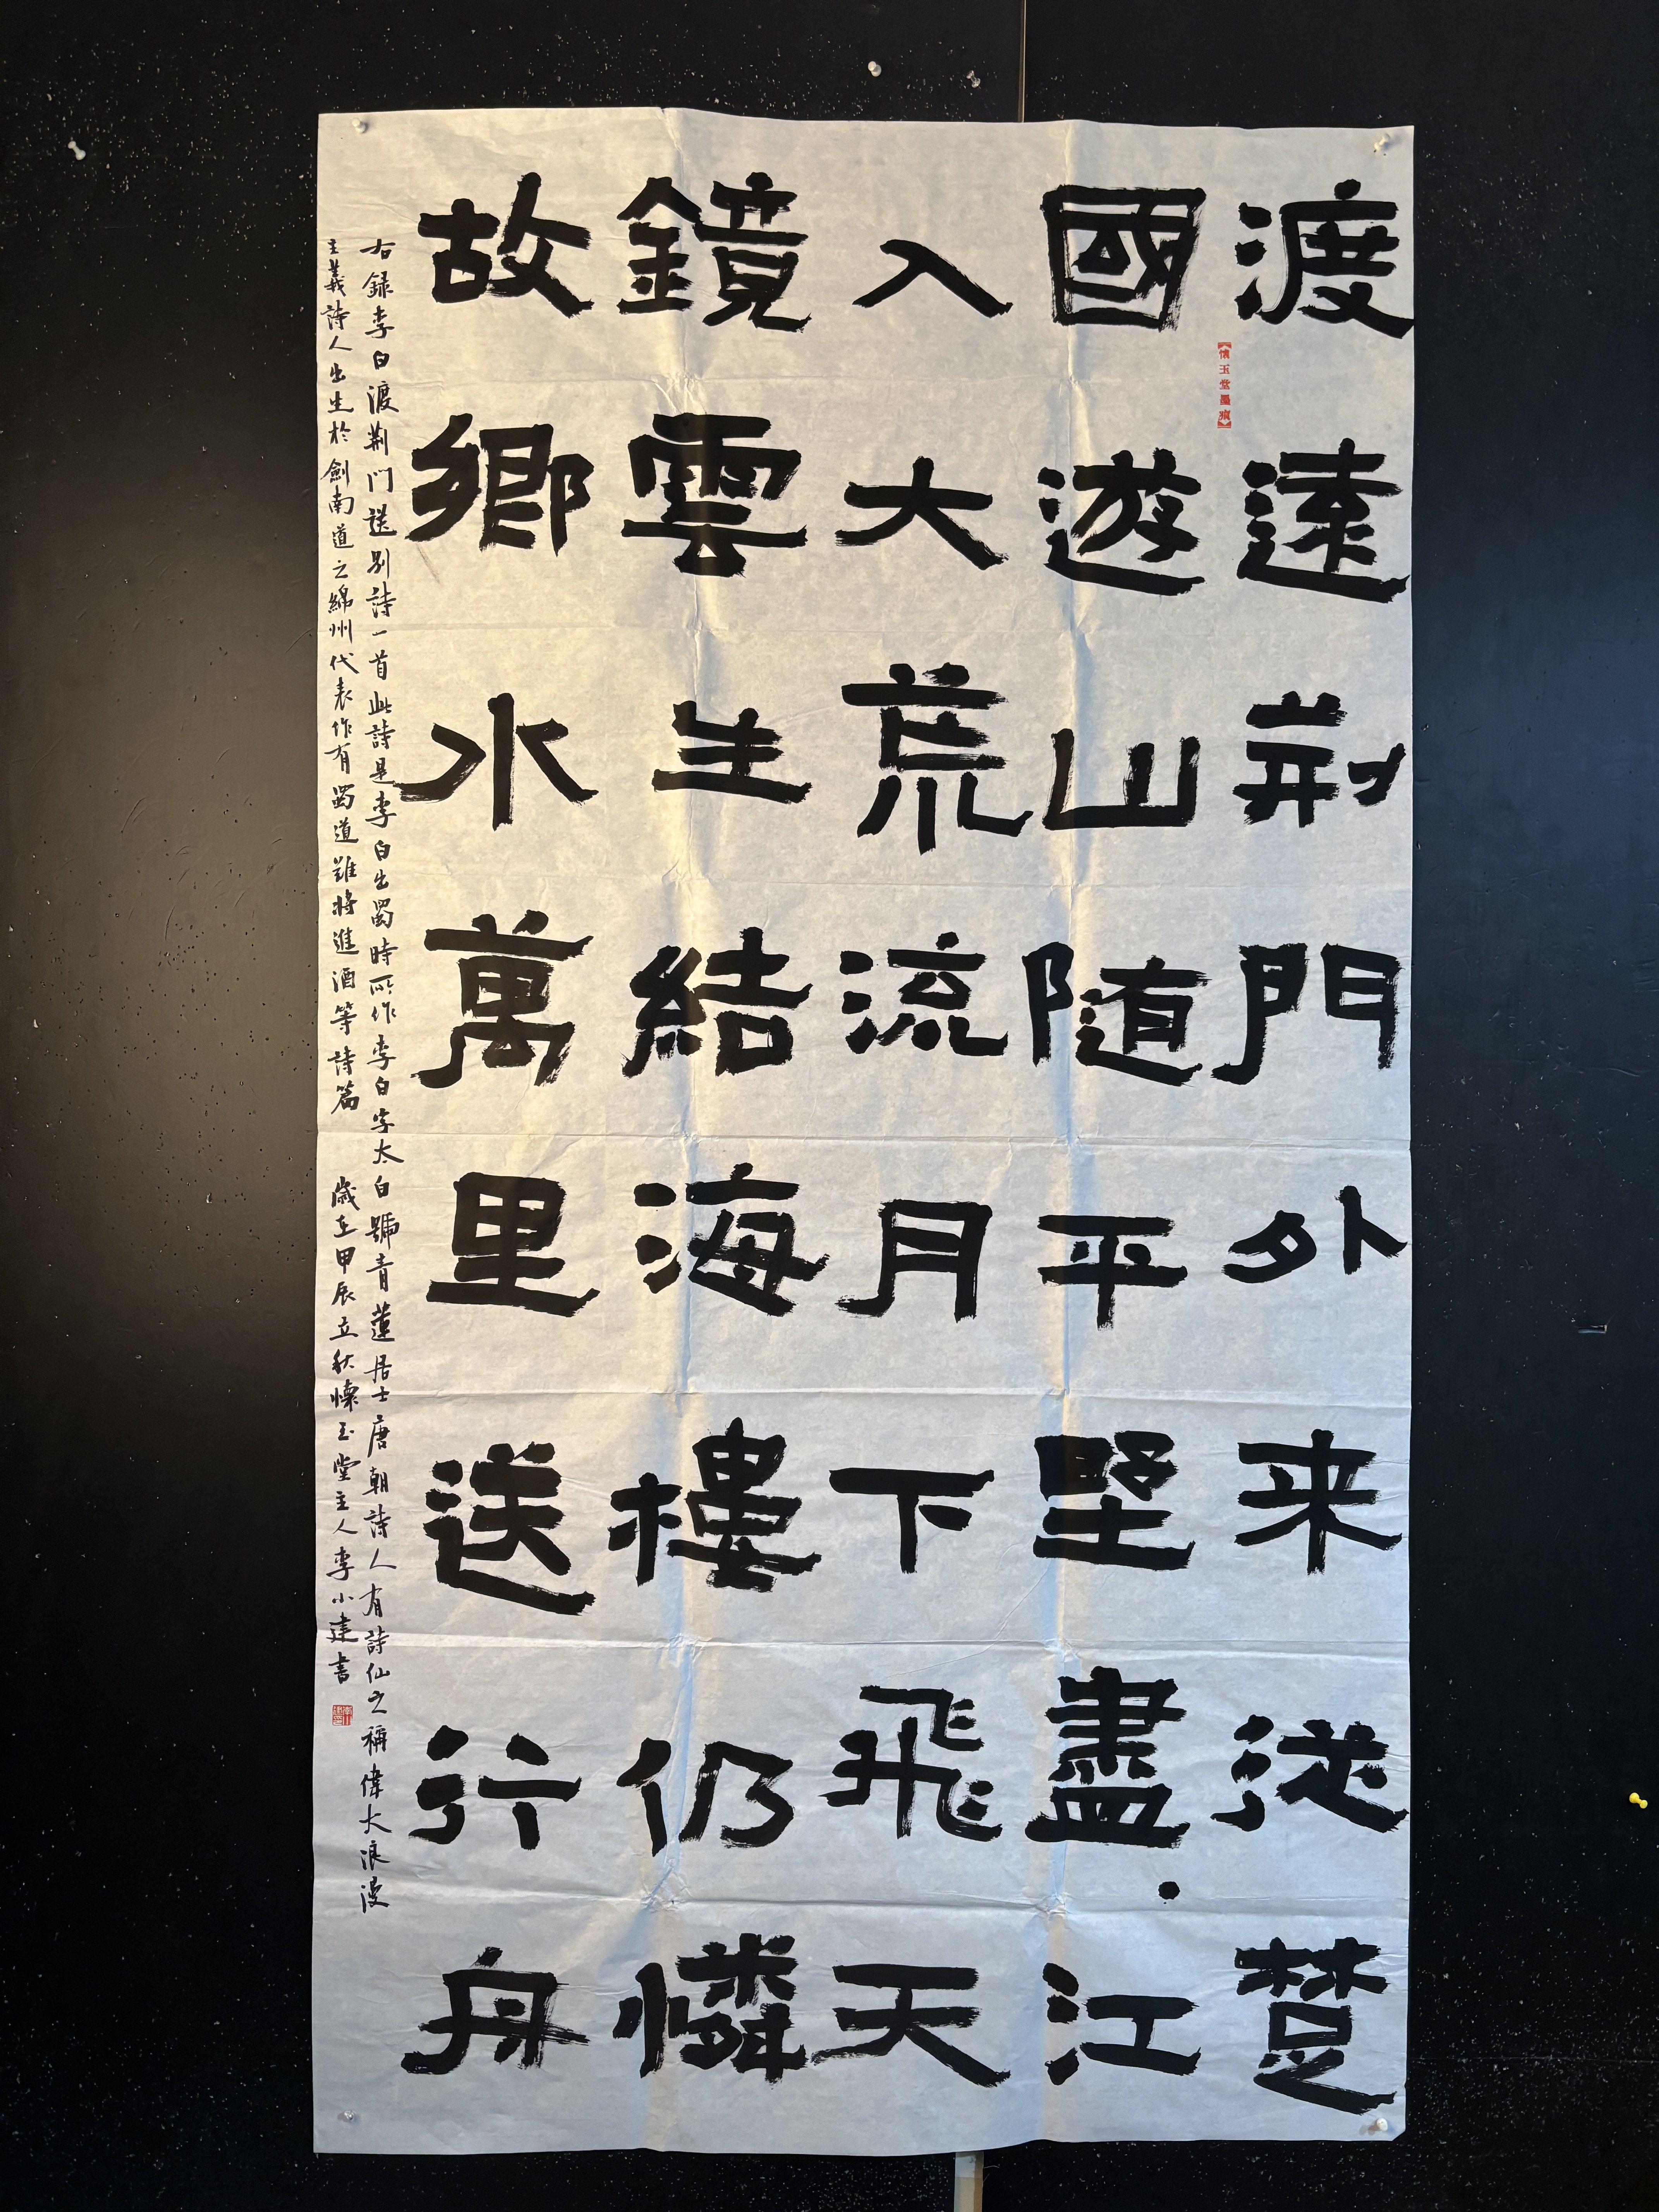 渡遠荆門外来従楚
國遊山随平墅盡江
入大荒流月下飛天
鏡雲生結海樓仍憐
故鄉水萬里送行舟
右録李白渡荆門送别詩一首此詩是李白出蜀時所作李白字太白號青蓮居士唐朝詩人有詩仙之稱偉大浪漫
主義詩人出生於劍南道之綿州代表作有蜀道難將進酒等詩篇 歲在甲辰立秋懷玉堂主人李小建書
懷玉堂墨痕